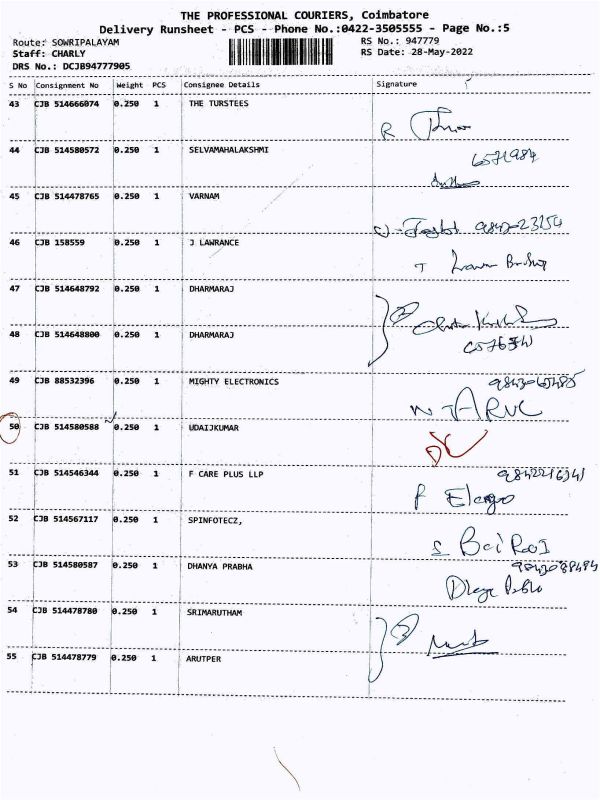 THE PROFESSIONAL COURIERS, Coimbatore
Delivery Runsheet - PCS - Phone No.:0422-3505555 - Page No.:5
Route: SOWRIPALAYAM RS No.: 947779
Staff: CHARLY RS Date: 28-May-2022
DRS No.: DCJB94777905
S No Consignment No Weight PCS Consignee Details Signature
43 CJB 514666074 0.250 1 THE TURSTEES
R
44 CJB 514580572 0.250 1 SELVAMAHALAKSHMI
6571984
45 CJB 514478765 0.250 1 VARNAM
46 CJB 158559 0.250 1 J LAWRANCE
47 CJB 514648792 0.250 1 DHARMARAJ
48 CJB 514648800 0.250 1 DHARMARAJ
49 CJB 88532396 0.250 1 MIGHTY ELECTRONICS
50 CJB 514580588 0.250 1 UDAIJKUMAR
51 CJB 514546344 0.250 1 F CARE PLUS LLP
52 CJB 514567117 0.250 1 SPINFOTECZ,
53 CJB 514580587 0.250 1 DHANYA PRABHA
54 CJB 514478780 0.250 1 SRIMARUTHAM
55 CJB 514478779 0.250 1 ARUTPER